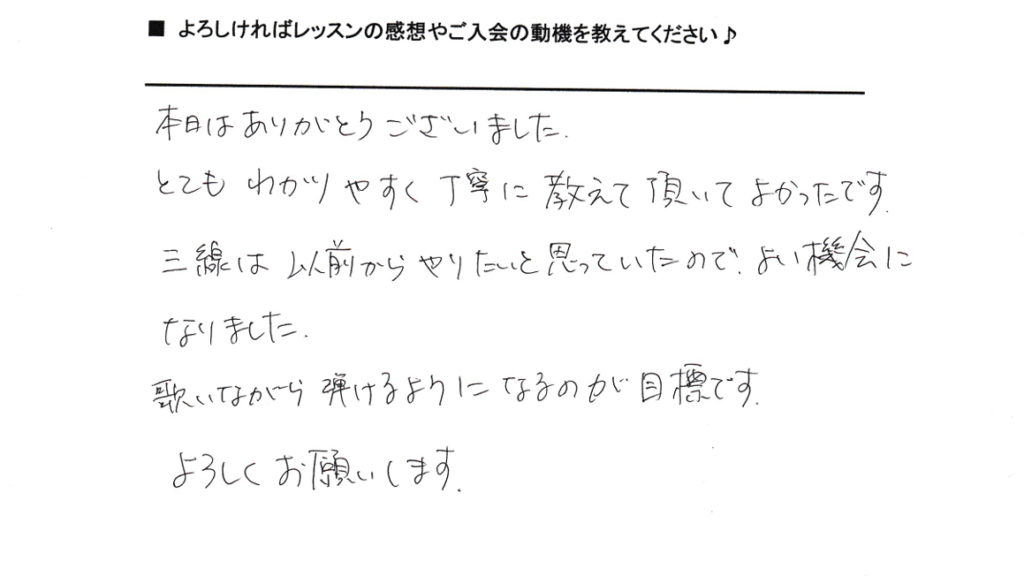 ■ よろしければレッスンの感想やご入会の動機を教えてください♪
本日はありがとうございました.
とても わかりやすく 丁寧に 教えて 頂いて よかったです.
三線は 以前から やりたいと 思っていたので、よい機会に
なりました.
歌いながら 弾けるように なるのが 目標です.
よろしく お願いします.